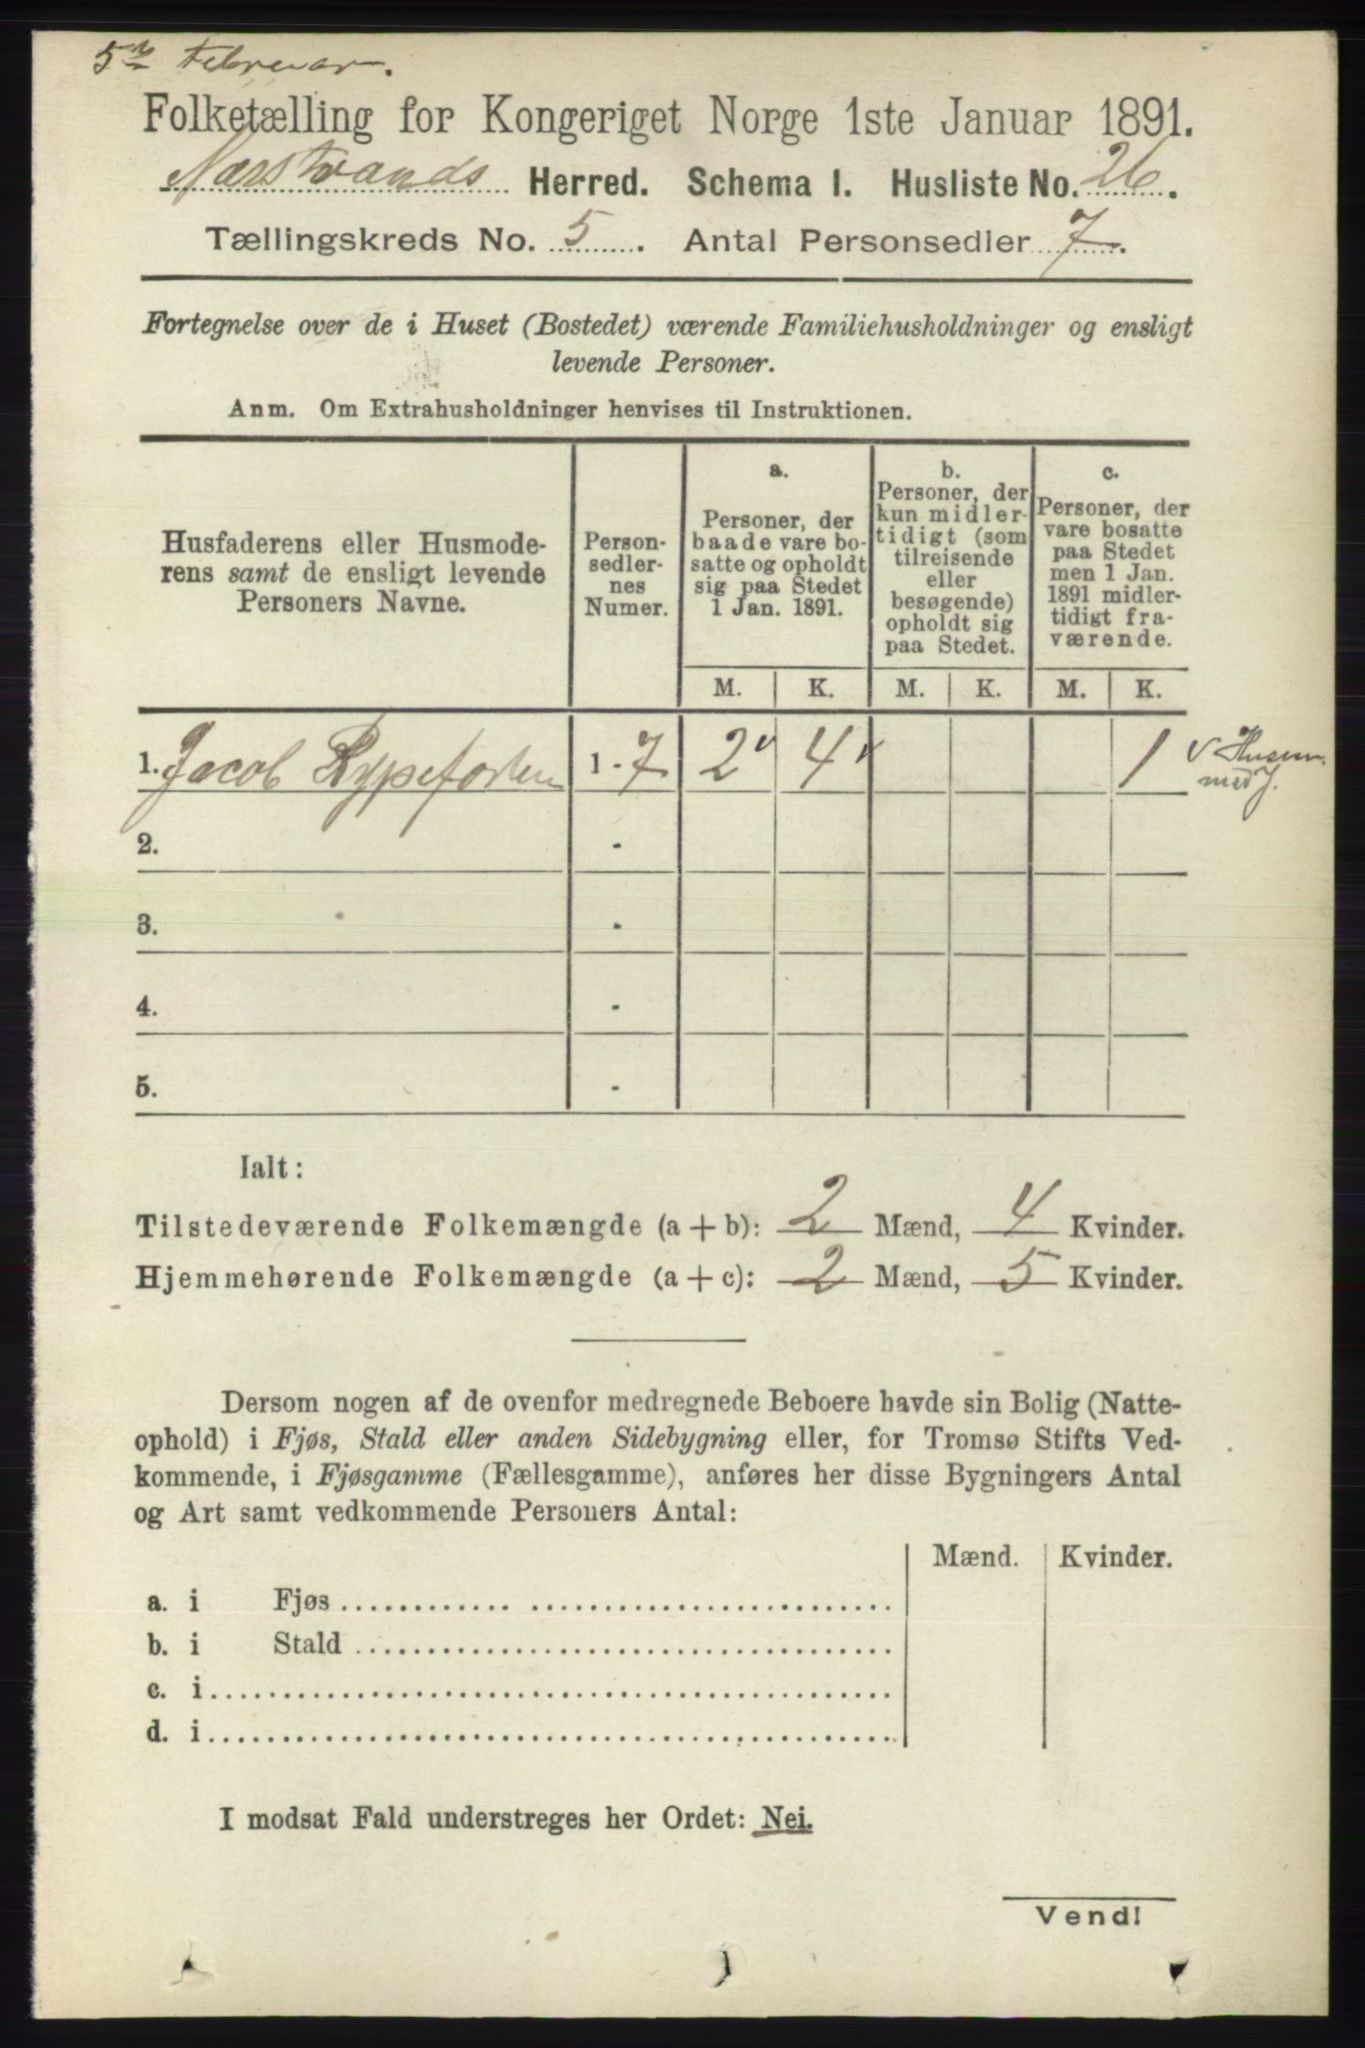 5te Februar.
Folketælling for Kongeriget Norge 1ste Januar 1891.
Nærstrands Herred. Schema I. Husliste No. 26.
Tællingskreds No. 5. Antal Personsedler 7.
Fortegnelse over de i Huset (Bostedet) værende Familiehusholdninger og ensligt
levende Personer.
Anm. Om Extrahusholdninger henvises til Instruktionen.
Husfaderens eller Husmode-
rens samt de ensligt levende
Personers Navne.
Person-
sedler-
nes
Numer.
a.
Personer, der
baade vare bo-
satte og opholdt
sig paa Stedet
1 Jan. 1891.
b.
Personer, der
kun midler-
tidigt (som
tilreisende
eller
besøgende)
opholdt sig
paa Stedet.
c.
Personer, der
vare bosatte
paa Stedet
men 1 Jan.
1891 midler-
tidigt fra-
værende.
M. K. M. K. M. K.
1. Jacob Rypefosten 1 - 7 2 4 1
med J.
2. -
3. -
4. -
5. -
Ialt:
Tilstedeværende Folkemængde (a + b): 2 Mænd, 4 Kvinder.
Hjemmehørende Folkemængde (a + c): 2 Mænd, 5 Kvinder.
Dersom nogen af de ovenfor medregnede Beboere havde sin Bolig (Natte-
ophold) i Fjøs, Stald eller anden Sidebygning eller, for Tromsø Stifts Ved-
kommende, i Fjøsgamme (Fællesgamme), anføres her disse Bygningers Antal
og Art samt vedkommende Personers Antal:
Mænd. Kvinder.
a. i Fjøs
b. i Stald
c. i
d. i
I modsat Fald understreges her Ordet: Nei.
Vend!